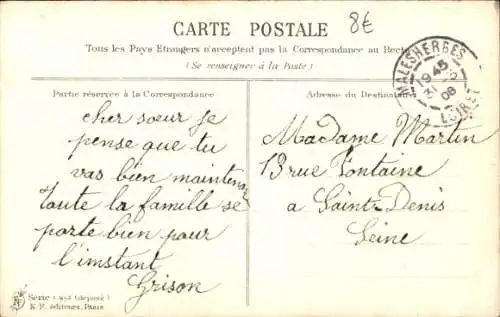 CARTE POSTALE
8€
Tous les Pays Etrangers n'acceptent pas la Correspondance au Recto
(Se renseigner à la Poste)
MALESHERBES
19 45
31
08
LOIRET
Partie réservée à la Correspondance
Adresse du Destinataire
cher sœur je
pense que tu
vas bien maintenant
toute la famille se
porte bien pour
l'imstant
Grison
Madame Martin
13 rue Fontaine
a Saint-Denis
Seine
Série (déposé)
K. F. éditeurs, Paris